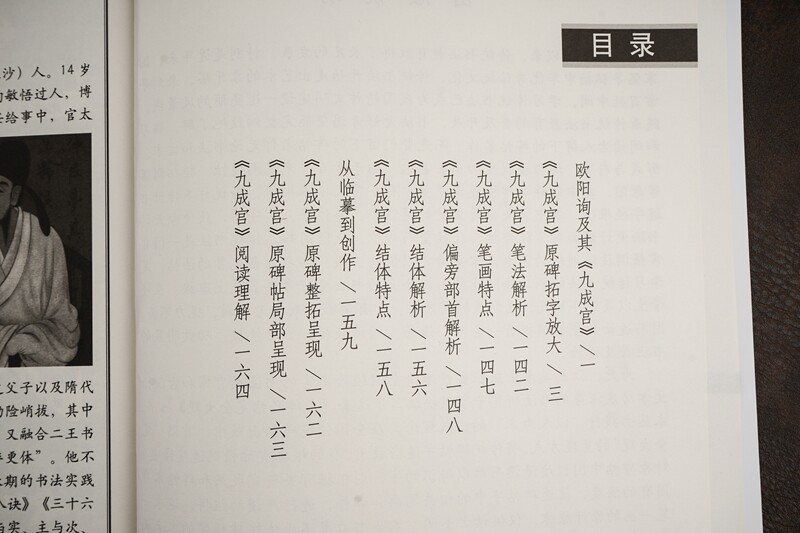 沙）人。14 岁
敏悟过人，博
给事中，官太
父子以及隋代
险峭拔，其中
又融合二王书
更体”。他不
期的书法实践
诀》《三十六
实、主与次、
目录
欧阳询及其《九成宫》／一
《九成宫》原碑拓字放大／三
《九成宫》笔法解析／一四二
《九成宫》笔画特点／一四七
《九成宫》偏旁部首解析／一四八
《九成宫》结体解析／一五六
《九成宫》结体特点／一五八
从临摹到创作／一五九
《九成宫》原碑整拓呈现／一六二
《九成宫》原碑帖局部呈现／一六三
《九成宫》阅读理解／一六四